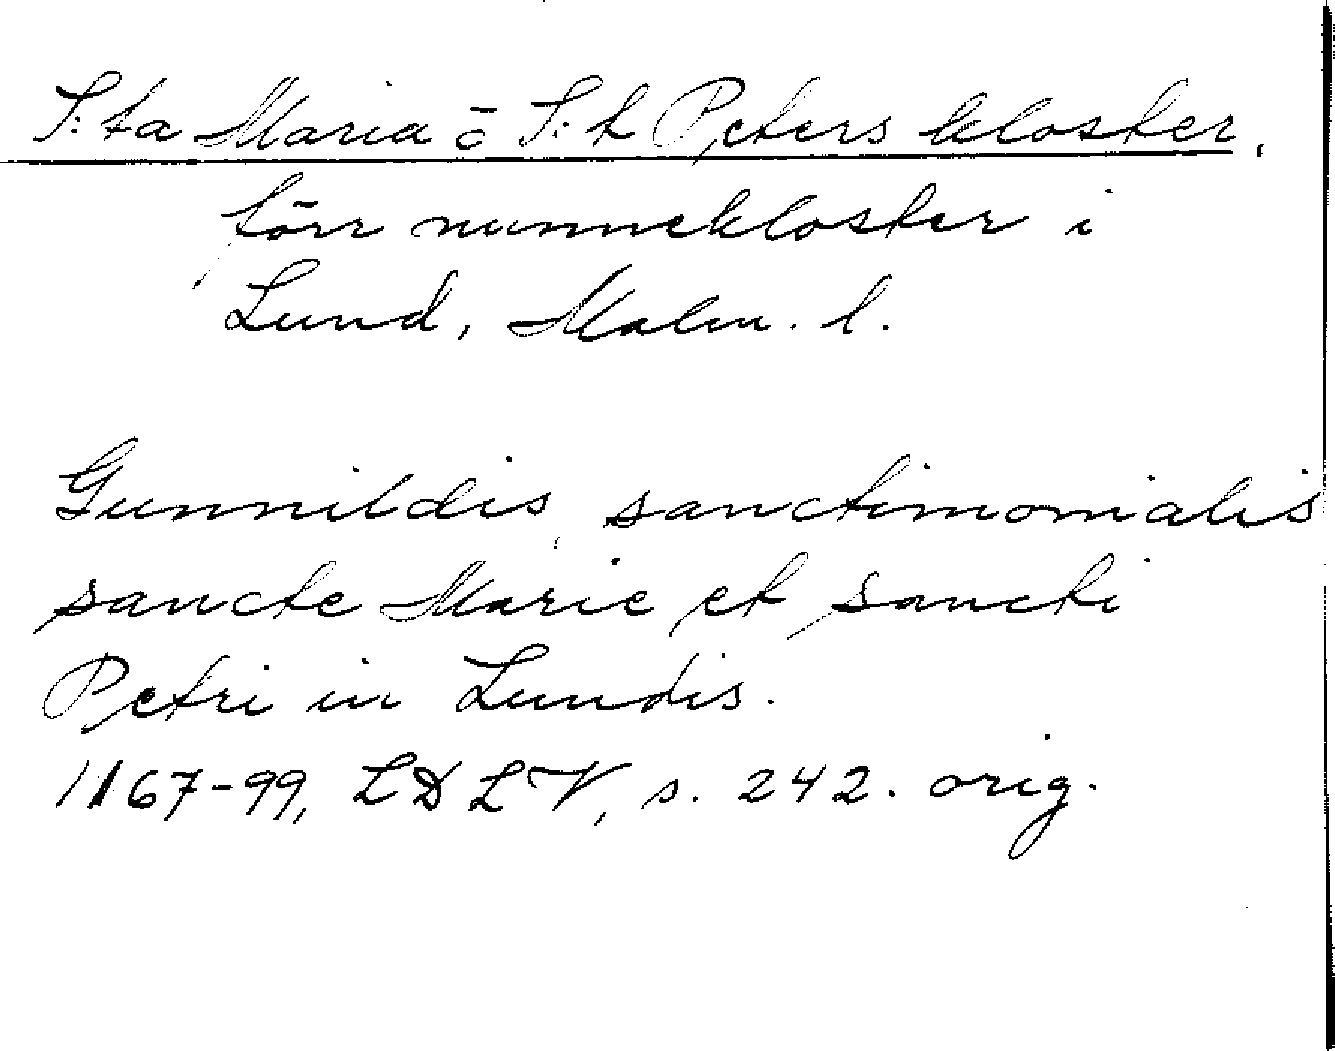 S:ta Maria o S:t Peters kloster,
förr nunnekloster i
Lund, Malm. l.
Gunnildis, sanctimonialis
sancte Marie et sancti
Petri in Lundis.
1167-99, LDLV, s. 242. orig.